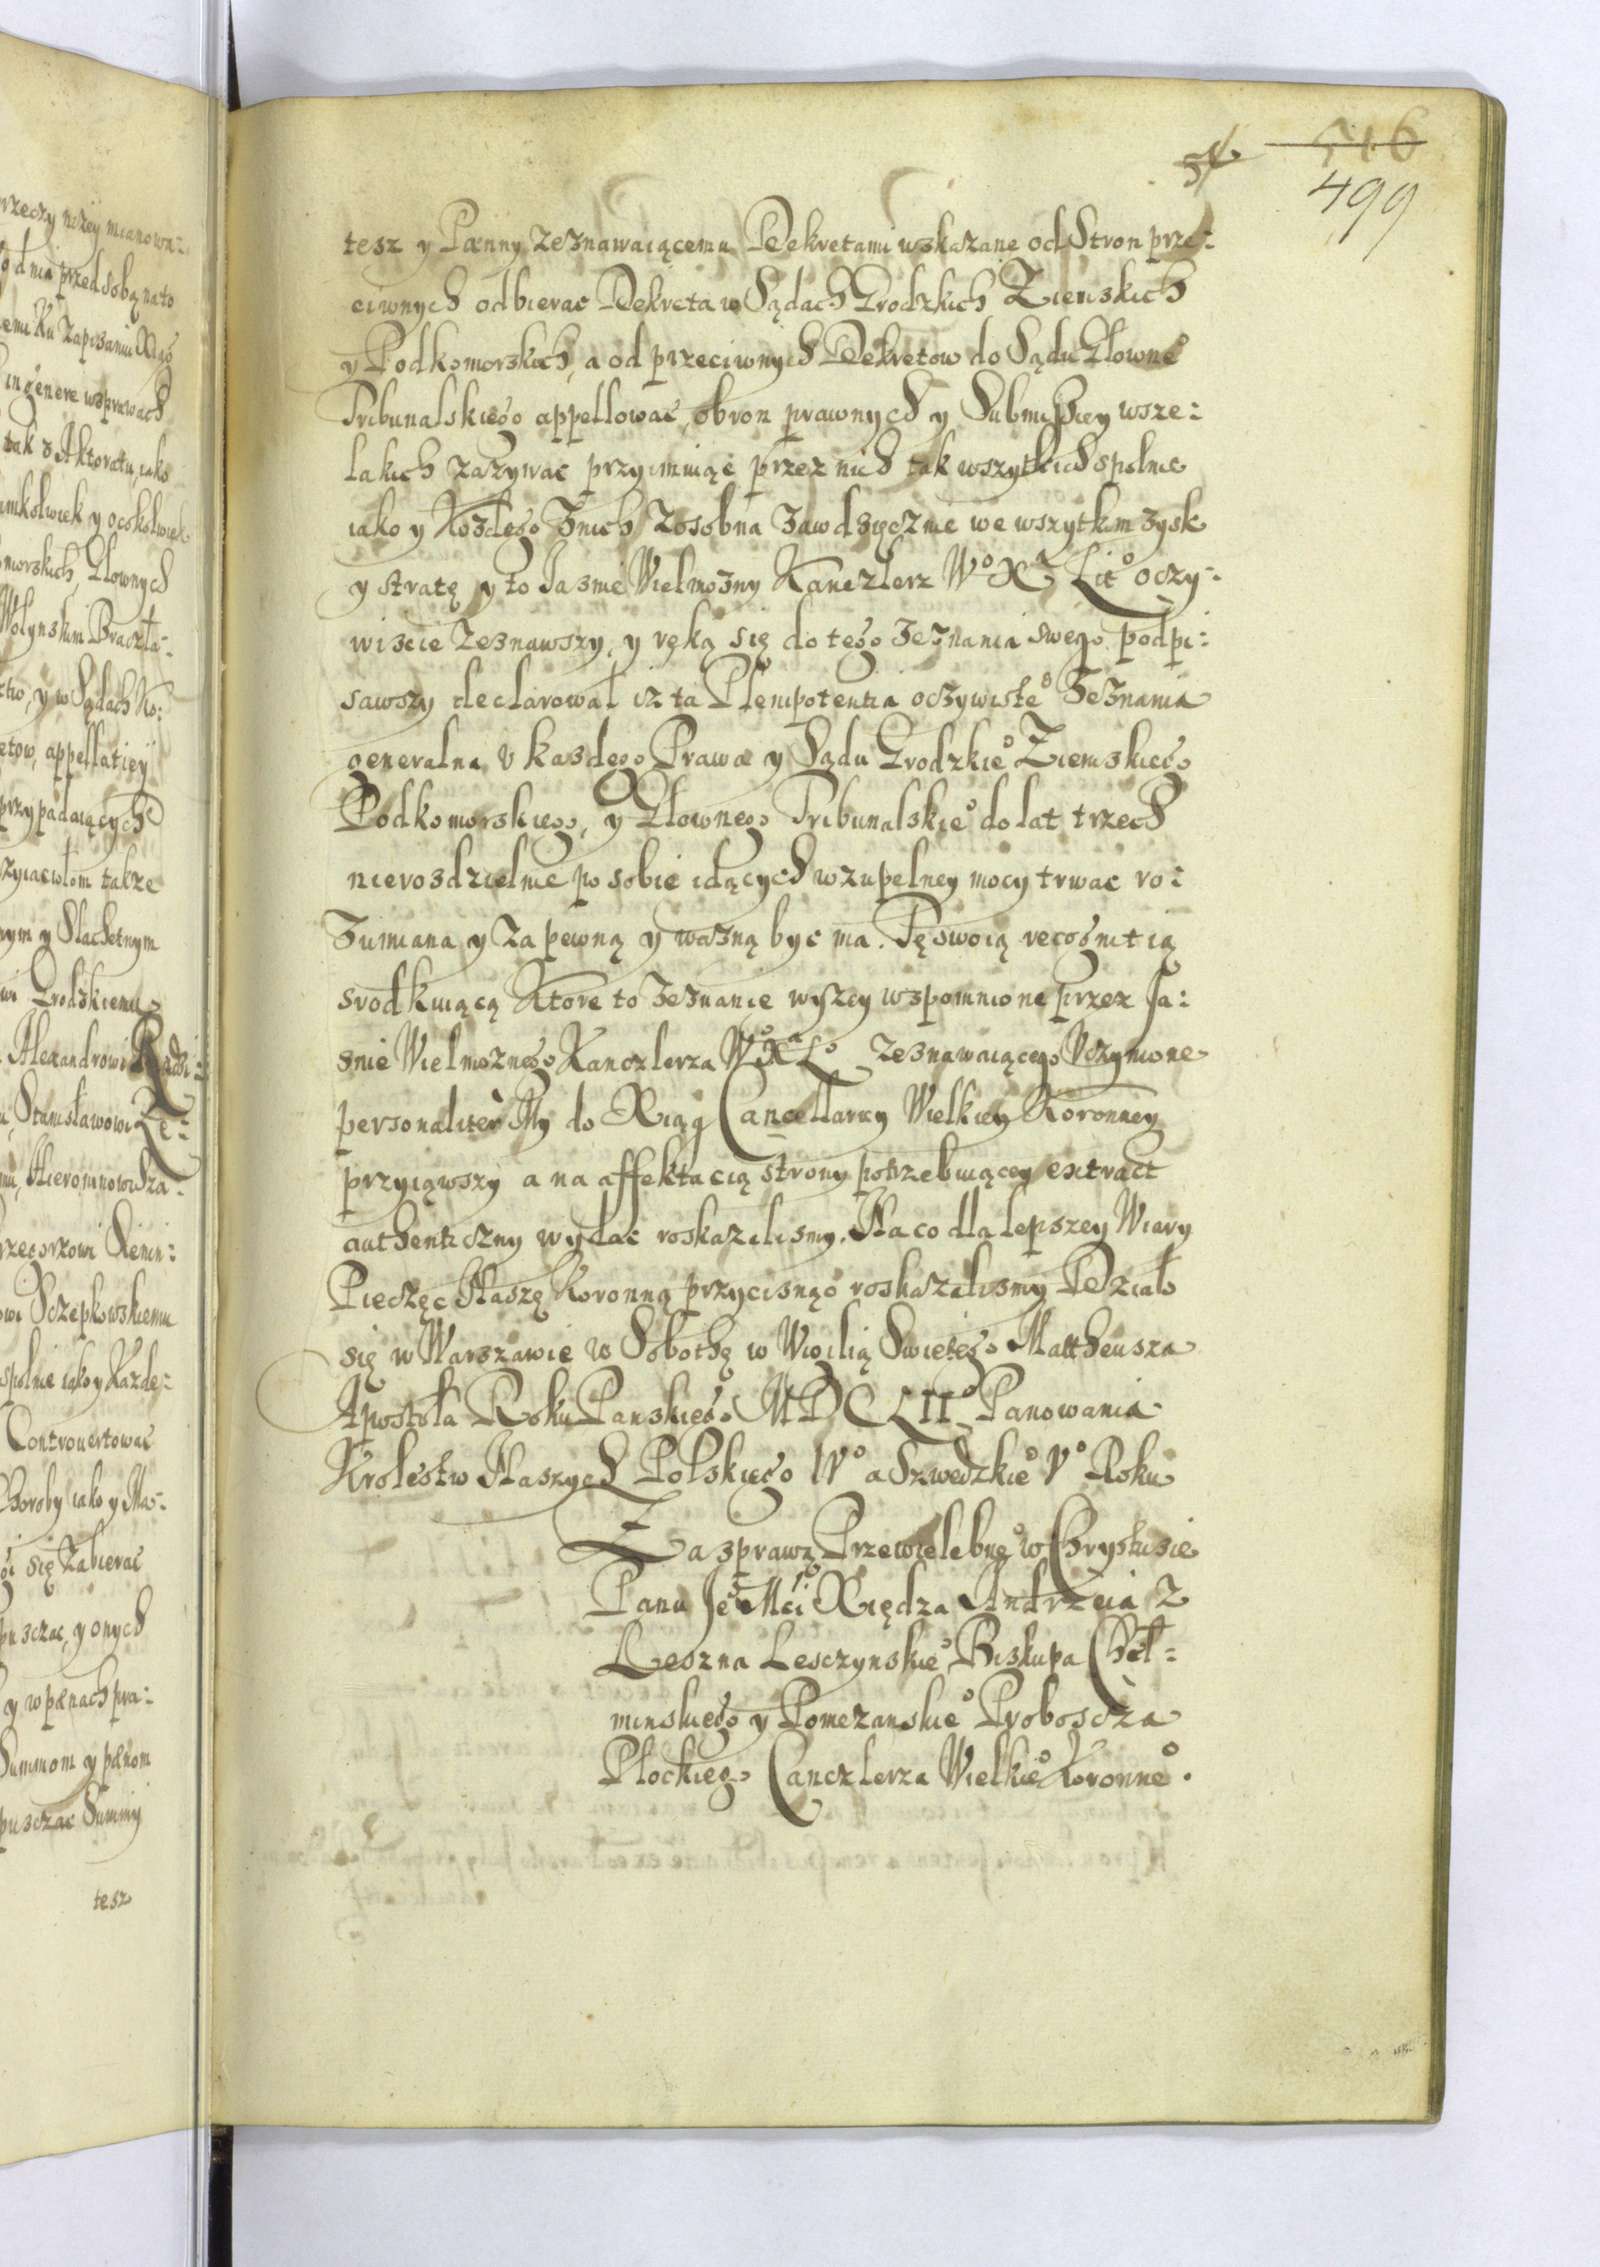 rzeczy niżey mianowa-
od nia przed sobą na to
emu Ku Zapisaniu Xiąg
in genere w sprawach
tak z Aktoratu, iako
mkolwiek y ocokolwiek
morskich, Głownych
Wołynskim Bracła-
y w Sądach Ko-
etow, appellatiey
przypadaiących
zyiaciołom także
nym y Slachetnym
wi Grodzkiemu
Alexandrowi
Stanisławowi Ze-
mu, Hieronimowi Za-
rzegorzowi Kenin-
owi Sczepkowskiemu
spolnie iako y Kazde-
Controuertować
Osoroby iako y Mas-
się Zabierać
puszczac, y onych
y w pænach pra-
Summom y pænom
puszczac Summy
tesz
516
499
tesz y Pænny zeznawaiącemu Dekretami wskazane od Stron prze-
ciwnych odbierac Dekreta w Sądach Grodzkich Ziemskich
y Podkomorskich, a od przeciwnych Dekretow do Sądu Głowne°
Tribunalskiego appellowac, obron prawnych y Submissiey wsze-
lakich zazywac przyimuiąc przez nich tak wszytkich spolnie
iako y Kozdego Znich Zosobna Zawdzięcznie we wszytkim zysk
y stratę y to Jasnie Wielmozny Kanczlerz W° X² Lit° oczy-
wiscie zeznawszy, y ręką się do tego Zeznania swego podpi-
sawszy declarował iz ta Plenipotentia oczywiste° Zeznania
generalna v kazdego Prawa y Sądu Grodzkie° Ziemskiego
Podkomorskiego, y Głownego Tribunalskie° do lat trzech
nierozdzielnie po sobie idących w zupelney mocy trwac ro-
zumiana y Za pewną y wazną byc ma. Tę swoią recognitią
srodkuiącą Ktore to Zeznanie wyszey wspomnione przez Ja-
snie Wielmoznego Kanczlerza W° Xª L° zeznawaiącego Vczynione
personaliter My do Xiąg Cancellariey Wielkiey Koronney
przyiąwszy a na affektacią strony potrzebuiącey extract
authenticzny wydac roskazalismy. Na co dla lepszey Wiary
Pieczęc Naszę Koronną przycisnąc roskazalismy Działo
się w Warszawie w Sobothę w Wigilią Swiętego Mattheusza
Apostoła Roku Panskiego MDCLII° Panowania
Krolestw Naszych Polskiego IV° a Szwedzkie° V° Roku
Za sprawą Przewielebne° w Chrystusie
Panu Je° Mci Xiędza Andrzeia Z
Leszna Lesczynskie° Biskupa Cheł-
minskiego y Pomezanskie° Proboscza
Płockiego Canczlerza Wielkie° Koronne°.